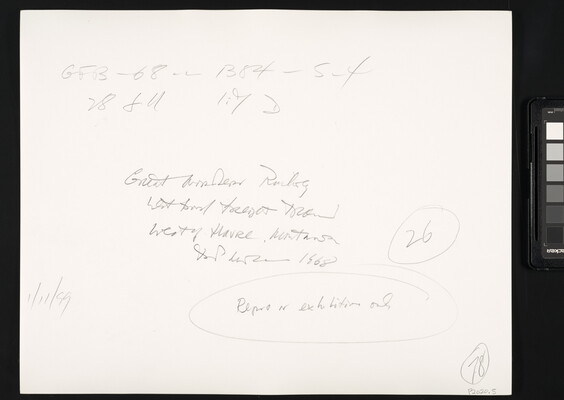 GFB-68-- B84-5-4
28 f 11
Great Northern Railway
West bound freight train
West of Havre, Montana
1968
26
Repro or exhibition only
1/11/99
78